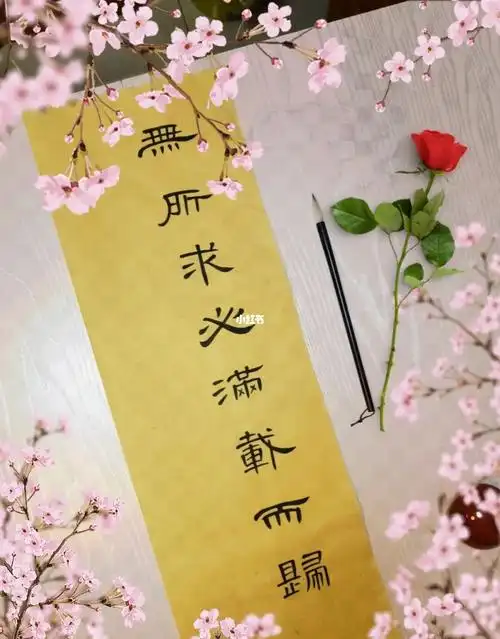 無所求必滿載而歸
小红书